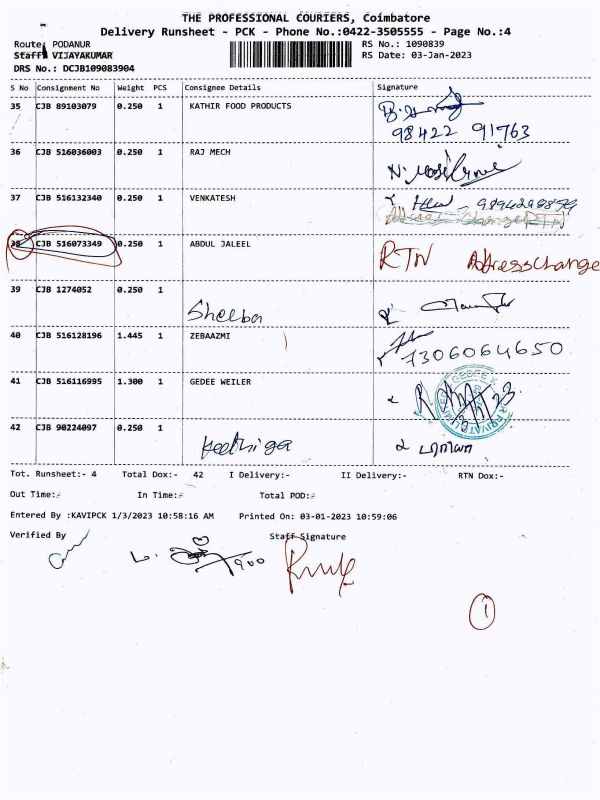 THE PROFESSIONAL COURIERS, Coimbatore
Delivery Runsheet - PCK - Phone No.:0422-3505555 - Page No.:4
Route: PODANUR RS No.: 1090839
Staff: VIJAYAKUMAR RS Date: 03-Jan-2023
DRS No.: DCJB109083904
S No Consignment No Weight PCS Consignee Details Signature
35 CJB 89103079 0.250 1 KATHIR FOOD PRODUCTS
98422 91763
36 CJB 516036003 0.250 1 RAJ MECH
37 CJB 516132340 0.250 1 VENKATESH
38 CJB 516073349 0.250 1 ABDUL JALEEL RTN Address Change
39 CJB 1274052 0.250 1
Sheeba
40 CJB 516128196 1.445 1 ZEBAAZMI
7306064650
41 CJB 516116995 1.300 1 GEDEE WEILER
42 CJB 90224097 0.250 1
Tot. Runsheet:- 4 Total Dox:- 42 I Delivery:- II Delivery:- RTN Dox:-
Out Time:- In Time:- Total POD:-
Entered By :KAVIPCK 1/3/2023 10:58:16 AM Printed On: 03-01-2023 10:59:06
Verified By Staff Signature
1